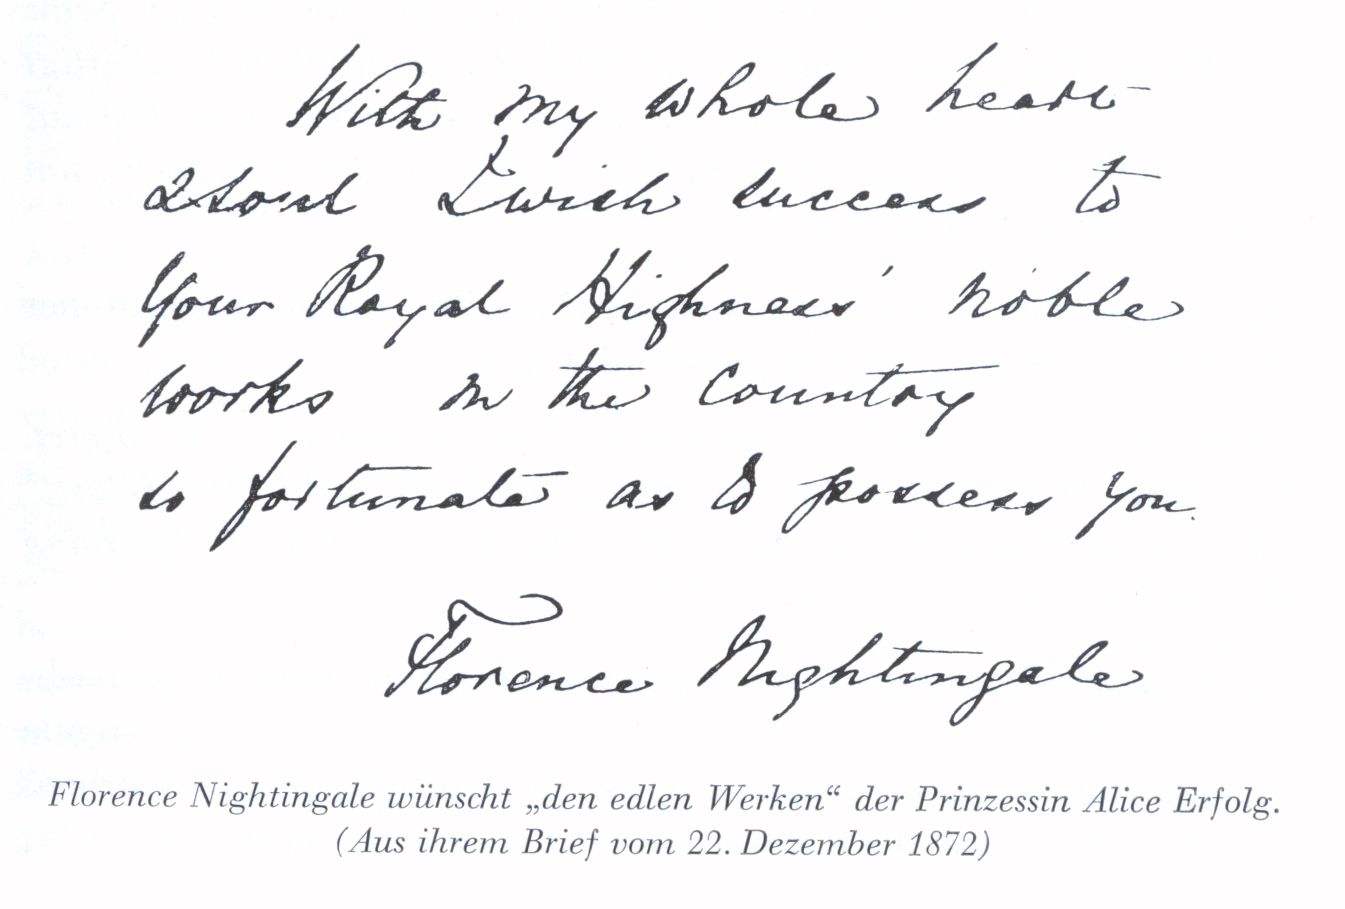 With my whole heart
& soul I wish success to
Your Royal Highness' noble
works in the country
so fortunate as to possess you.
Florence Nightingale
Florence Nightingale wünscht „den edlen Werken“ der Prinzessin Alice Erfolg.
(Aus ihrem Brief vom 22. Dezember 1872)